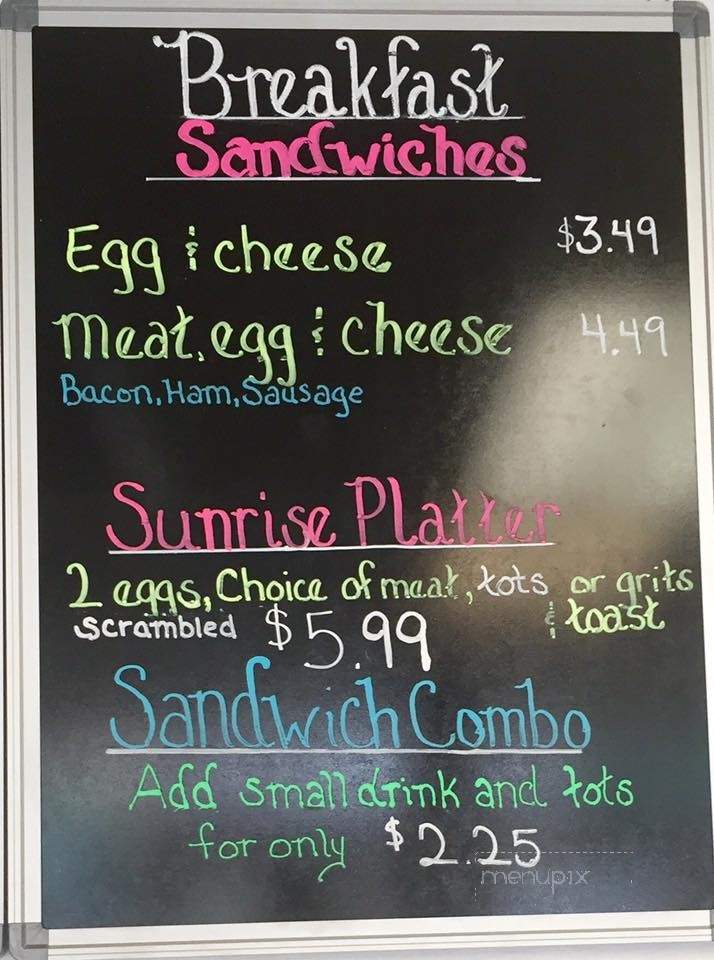 Breakfast
Sandwiches
Egg & cheese $3.49
Meat, egg & cheese 4.49
Bacon, Ham, Sausage
Sunrise Platter
2 eggs, Choice of meat, tots or grits
scrambled $5.99 & toast
Sandwich Combo
Add small drink and tots
for only $2.25
menupix